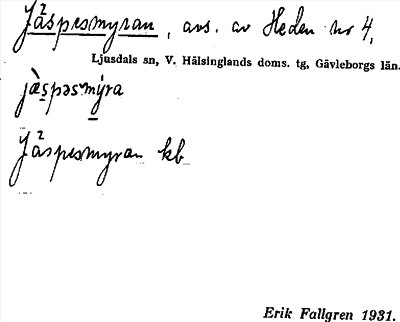 Jäspesmyran, avs. av Heden nr 4,
Ljusdals sn, V. Hälsinglands doms. tg, Gävleborgs län.
jæ̀spəsmýra
Jäspesmyran kb
Erik Fallgren 1931.